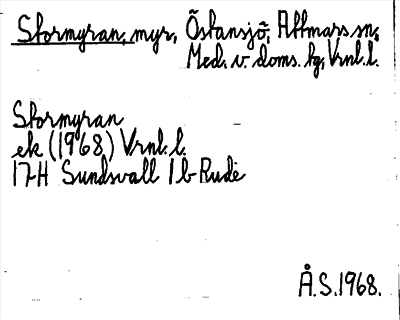 Stormyran, myr, Östansjö, Attmars sn,
Med. v. doms. tg, Vrnl. l.
Stormyran
ek (1968) Vrnl. l.
17H Sundsvall 1b Rude
Å.S. 1968.